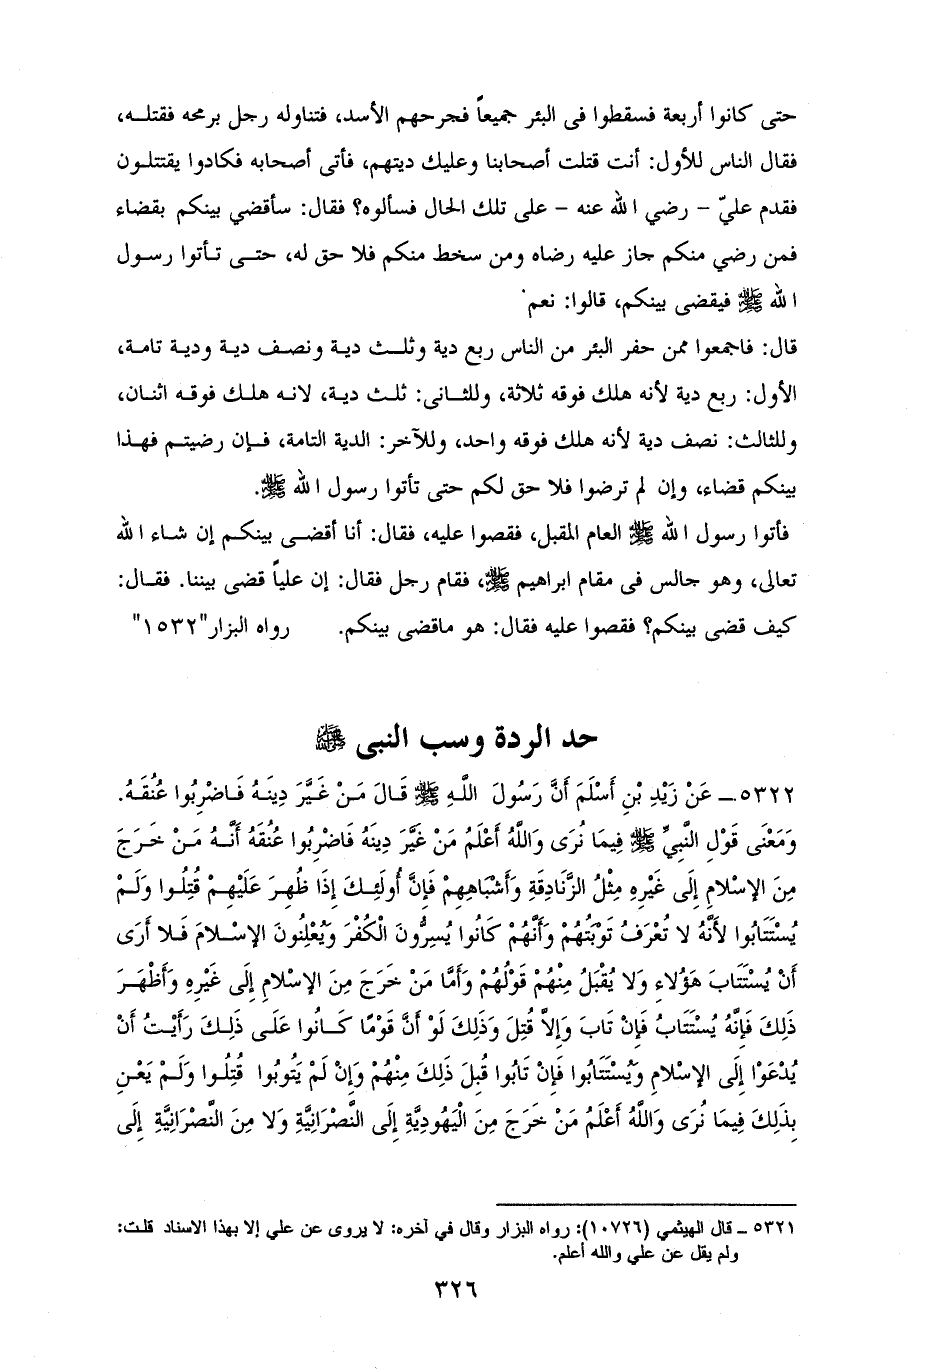 حتى كانوا أربعة فسقطوا فى البئر جميعاً فجرحهم الأسد، فتناوله رجل برمحه فقتلـه،
فقال الناس للأول: أنت قتلت أصحابنا وعليك ديتهم، فأتى أصحابه فكادوا يقتتلـون
فقدم عليّ - رضي الله عنه - على تلك الحال فسألوه؟ فقال: سأقضي بينكم بقضاء
فمن رضي منكم جاز عليه رضاه ومن سخط منكم فلا حق له، حتـى تـأتوا رسـول
الله ﷺ فيقضى بينكم، قالوا: نعم
قال: فاجمعوا ممن حفر البئر من الناس ربع دية وثلـث ديـة ونصـف ديـة وديـة تامـة،
الأول: ربع دية لأنه هلك فوقه ثلاثة، وللثـانى: ثلـث ديـة، لانـه هلـك فوقـه اثنـان،
وللثالث: نصف دية لأنه هلك فوقه واحد، وللآخر: الدية التامة، فـإن رضيتـم فهـذا
بينكم قضاء، وإن لم ترضوا فلا حق لكم حتى تأتوا رسول الله ﷺ.
فأتوا رسول الله ﷺ العام المقبل، فقصوا عليه، فقال: أنا أقضـى بينكـم إن شـاء الله
تعالى، وهو جالس فى مقام ابراهيم ﷺ، فقام رجل فقال: إن علياً قضى بيننا. فقـال:
كيف قضى بينكم؟ فقصوا عليه فقال: هو ماقضى بينكم. رواه البزار"١٥٣٢"
حد الردة وسب النبى ﷺ
٥٣٢٢ـ عَنْ زَيْدِ بْنِ أَسْلَمَ أَنَّ رَسُولَ اللَّهِ ﷺ قَالَ مَنْ غَيَّرَ دِينَهُ فَاضْرِبُوا عُنُقَهُ.
وَمَعْنَى قَوْلِ النَّبِيِّ ﷺ فِيمَا نُرَى وَاللَّهُ أَعْلَمُ مَنْ غَيَّرَ دِينَهُ فَاضْرِبُوا عُنُقَهُ أَنَّـهُ مَـنْ خَـرَجَ
مِنَ الإِسْلامِ إِلَى غَيْرِهِ مِثْلُ الزَّنَادِقَةِ وَأَشْبَاهِهِمْ فَإِنَّ أُولَئِـكَ إِذَا ظُهِرَ عَلَيْهِـمْ قُتِلُـوا وَلَـمْ
يُسْتَتَابُوا لأَنَّهُ لا تُعْرَفُ تَوْبَتُهُمْ وَأَنَّهُمْ كَانُوا يُسِرُّونَ الْكُفْرَ وَيُعْلِنُونَ الإِسْـلامَ فَـلا أَرَى
أَنْ يُسْتَتَابَ هَؤُلاءِ وَلا يُقْبَلُ مِنْهُمْ قَوْلُهُمْ وَأَمَّا مَنْ خَرَجَ مِنَ الإِسْلامِ إِلَى غَيْرِهِ وَأَظْهَـرَ
ذَلِكَ فَإِنَّهُ يُسْتَتَابُ فَإِنْ تَابَ وَإِلاَّ قُتِلَ وَذَلِكَ لَوْ أَنَّ قَوْمًا كَـانُوا عَلَـى ذَلِـكَ رَأَيْـتُ أَنْ
يُدْعَوْا إِلَى الإِسْلامِ وَيُسْتَتَابُوا فَإِنْ تَابُوا قُبِلَ ذَلِكَ مِنْهُمْ وَإِنْ لَمْ يَتُوبُوا قُتِلُـوا وَلَـمْ يَعْـنِ
بِذَلِكَ فِيمَا نُرَى وَاللَّهُ أَعْلَمُ مَنْ خَرَجَ مِنَ الْيَهُودِيَّةِ إِلَى النَّصْرَانِيَّةِ وَلا مِنَ النَّصْرَانِيَّةِ إِلَى
٥٣٢١ ـ قال الهيثمي (١٠٧٢٦): رواه البزار وقال في آخره: لا يروى عن علي إلا بهذا الاسناد قلت:
ولم يقل عن علي والله أعلم.
٣٢٦